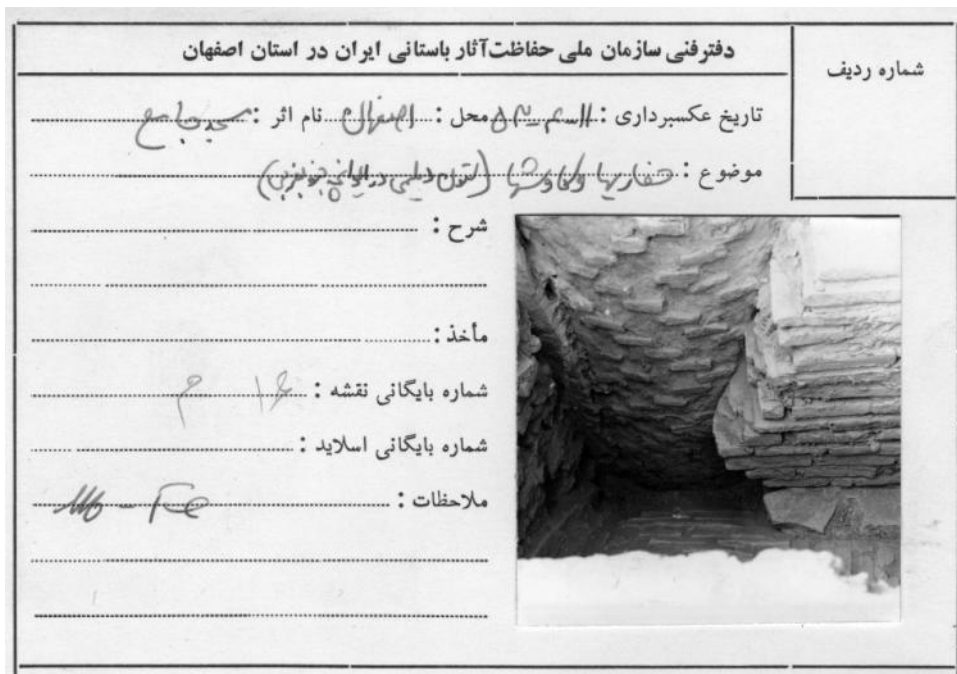 دفترفنی سازمان ملی حفاظت‌آثار باستانی ایران در استان اصفهان
شماره ردیف
تاریخ عکسبرداری : محل : اصفهان نام اثر : مسجد جامع
موضوع : حفاریها و کاوشها (ستون دیلمی در ایوان جنوبغربی)
شرح :
مأخذ :
شماره بایگانی نقشه :
شماره بایگانی اسلاید :
ملاحظات :